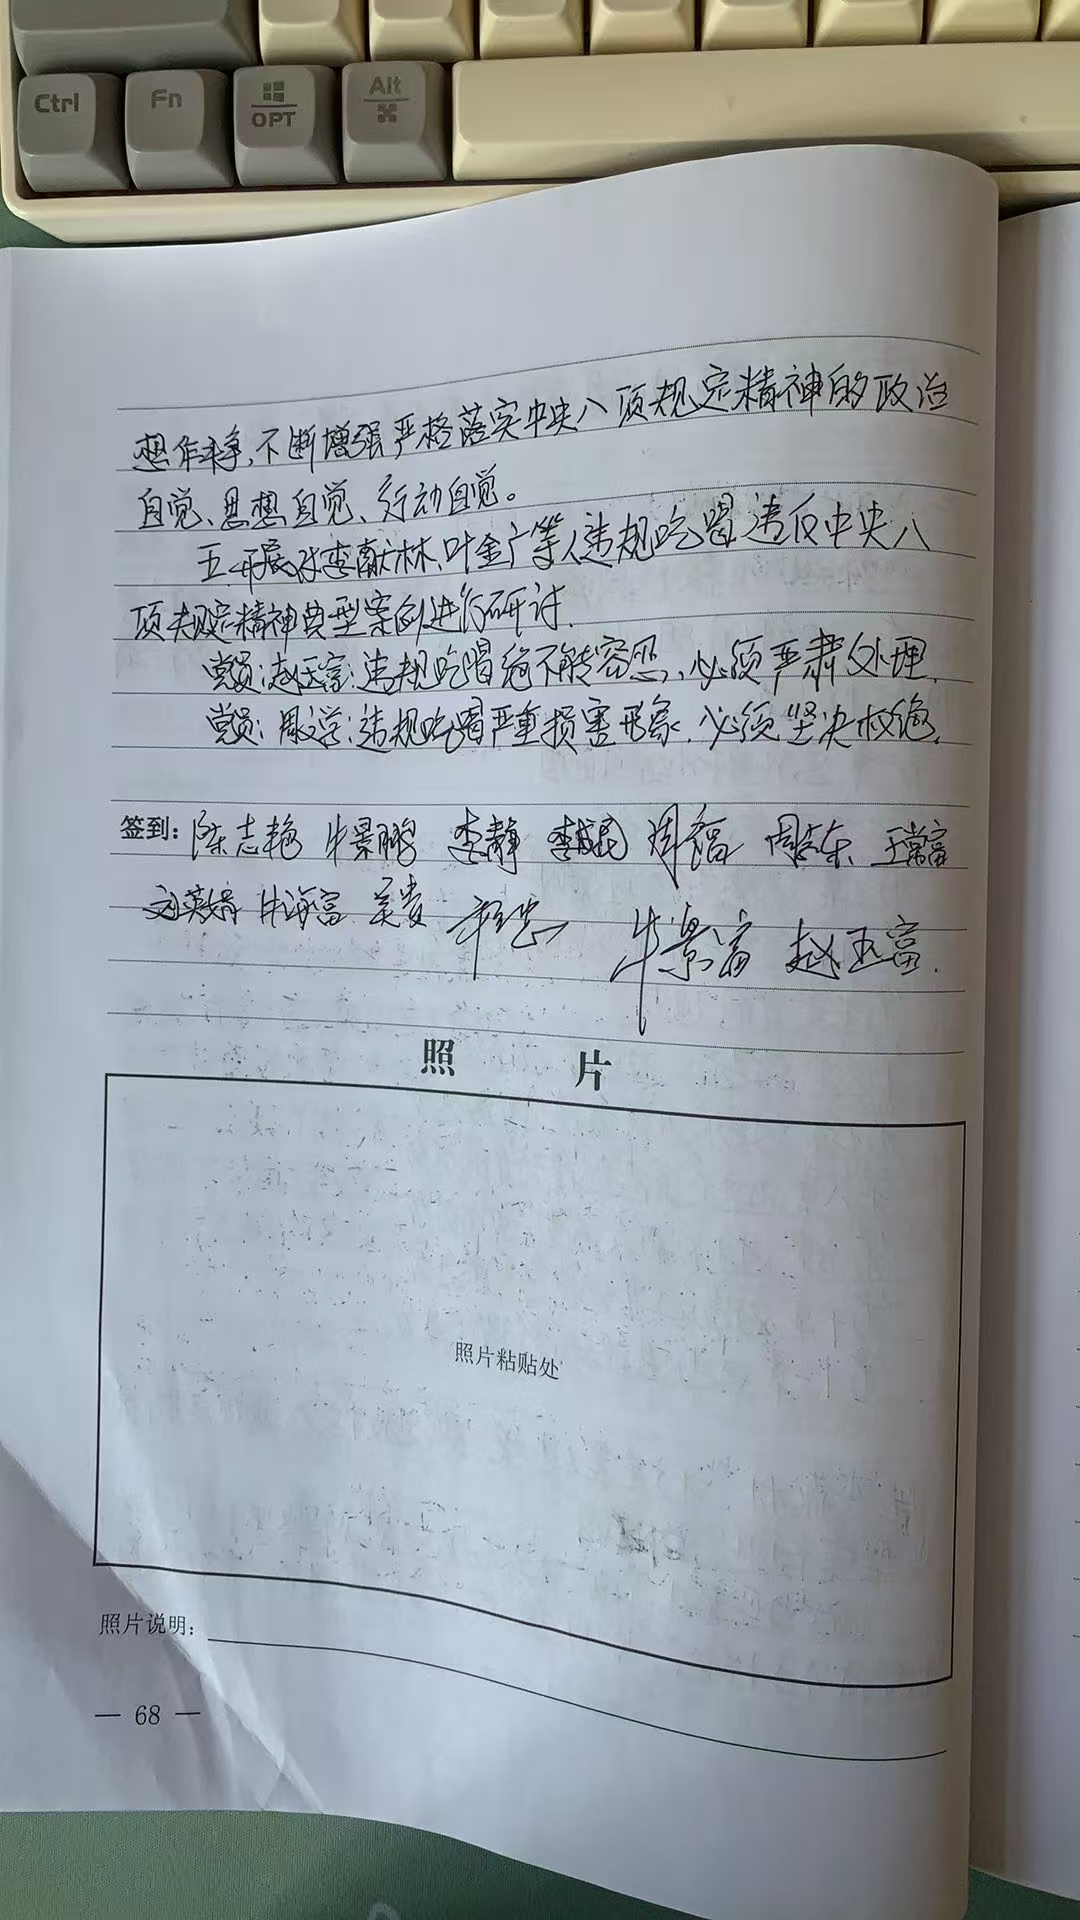 Ctrl Fn OPT Alt
想作斗争,不断增强严格落实中央八项规定精神的政治
自觉、思想自觉、行动自觉。
五、开展对李献林、叶金广等人违规吃喝违反中央八
项规定精神典型案例进行研讨.
党员:赵玉富:违规吃喝绝不能容忍,必须严肃处理.
党员:周学:违规吃喝严重损害形象.必须坚决杜绝.
签到: 陈志艳 牛景鹏 李静 李成民 周富 周东 王常富
刘英 牛海富 吴贵 牛景富 赵玉富.
照 片
照片粘贴处
照片说明:
— 68 —